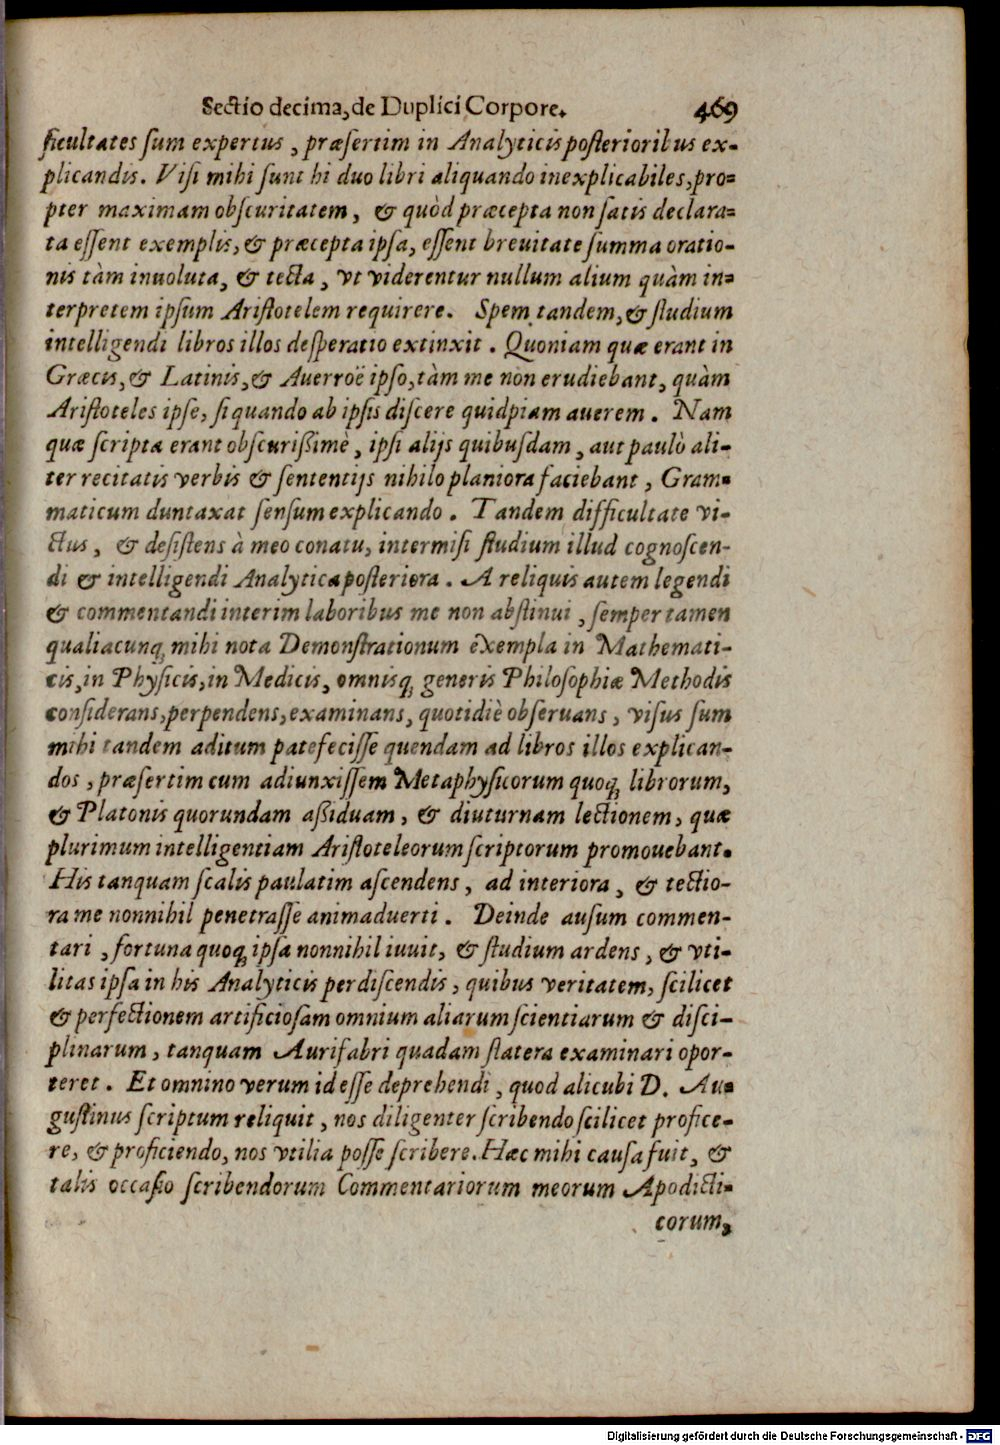 Sectio decima, de Duplici Corpore. 469
ficultates sum expertus, præsertim in Analyticis posterioribus ex-
plicandis. Visi mihi sunt hi duo libri aliquando inexplicabiles, pro-
pter maximam obscuritatem, & quòd præcepta non satis declara-
ta essent exemplis, & præcepta ipsa, essent breuitate summa oratio-
nis tàm inuoluta, & tecta, vt viderentur nullum alium quàm in-
terpretem ipsum Aristotelem requirere. Spem tandem, & studium
intelligendi libros illos desperatio extinxit. Quoniam quæ erant in
Græcis, & Latinis, & Auerroë ipso, tàm me non erudiebant, quàm
Aristoteles ipse, si quando ab ipsis discere quidpiam auerem. Nam
quæ scripta erant obscurißimè, ipsi alijs quibusdam, aut paulò ali-
ter recitatis verbis & sententijs nihilo planiora faciebant, Gram-
maticum duntaxat sensum explicando. Tandem difficultate vi-
ctus, & desistens à meo conatu, intermisi studium illud cognoscen-
di & intelligendi Analytica posteriora. A reliquis autem legendi
& commentandi interim laboribus me non abstinui, semper tamen
qualiacunq; mihi nota Demonstrationum exempla in Mathemati-
cis, in Physicis, in Medicis, omnisq; generis Philosophiæ Methodis
considerans, perpendens, examinans, quotidiè obseruans, visus sum
mihi tandem aditum patefecisse quendam ad libros illos explican-
dos, præsertim cum adiunxissem Metaphysicorum quoq; librorum,
& Platonis quorundam aßiduam, & diuturnam lectionem, quæ
plurimum intelligentiam Aristoteleorum scriptorum promouebant.
His tanquam scalis paulatim ascendens, ad interiora, & tectio-
ra me nonnihil penetrasse animaduerti. Deinde ausum commen-
tari, fortuna quoq; ipsa nonnihil iuuit, & studium ardens, & vti-
litas ipsa in his Analyticis perdiscendis, quibus veritatem, scilicet
& perfectionem artificiosam omnium aliarum scientiarum & disci-
plinarum, tanquam Aurifabri quadam statera examinari opor-
teret. Et omnino verum id esse deprehendi, quod alicubi D. Au-
gustinus scriptum reliquit, nos diligenter scribendo scilicet profice-
re, & proficiendo, nos vtilia posse scribere. Hæc mihi causa fuit, &
talis occasio scribendorum Commentariorum meorum Apodicti-
corum,
Digitalisierung gefördert durch die Deutsche Forschungsgemeinschaft - DFG